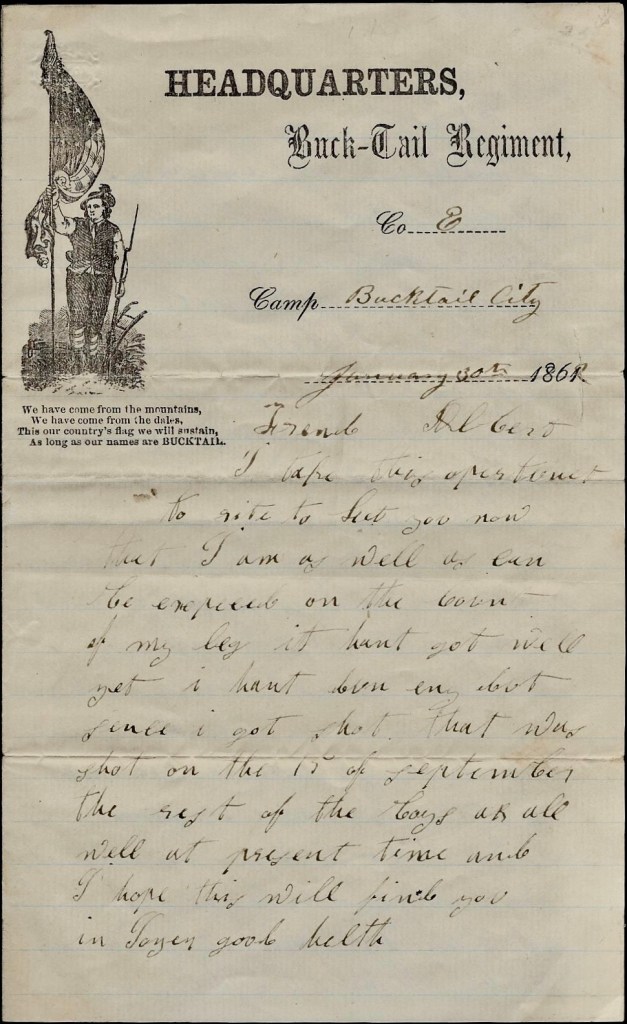 HEADQUARTERS,
Buck-Tail Regiment,
Co E
Camp Bucktail City
January 30th 1862
We have come from the mountains,
We have come from the dales,
This our country's flag we will sustain,
As long as our names are BUCKTAIL.
Frend Albert
I take this
to rite to let you now
that I am as well as can
be on the count
of my leg it hant got well
yet i hant don eny
sence i got shot. that was
shot on the of september
the rest of the boys ar all
well at present time and
I hope this will find you
in good helth